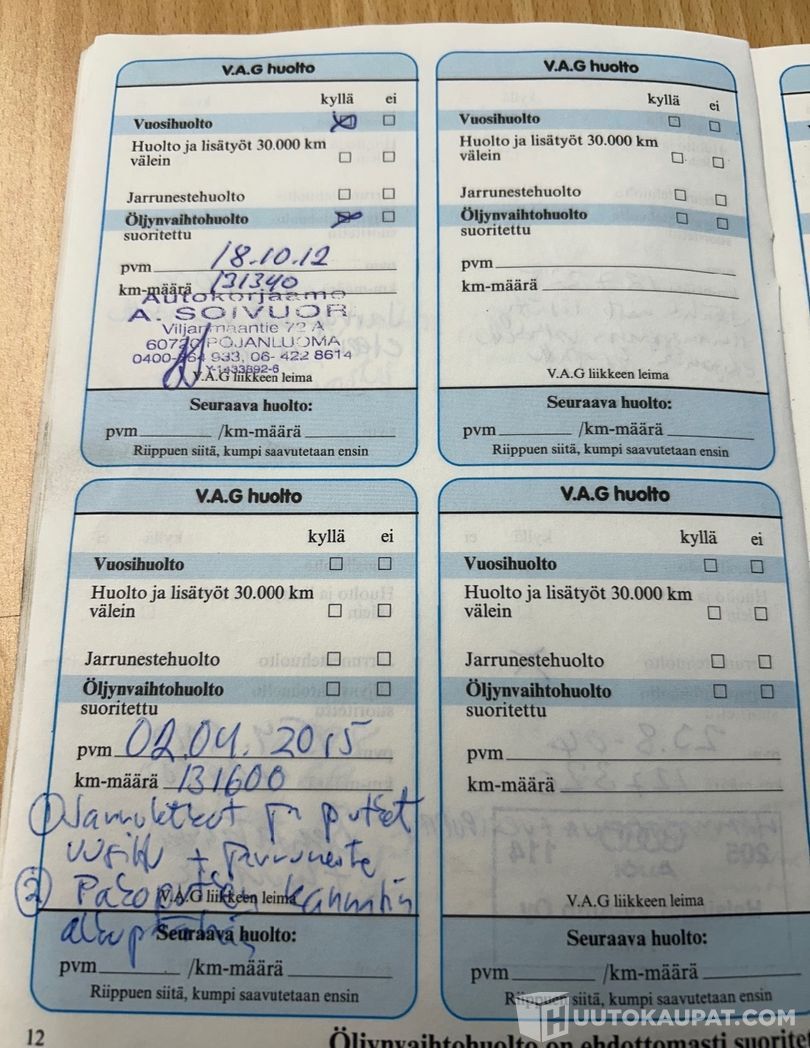 V.A.G huolto
kyllä ei
Vuosihuolto
Huolto ja lisätyöt 30.000 km
välein
Jarrunestehuolto
Öljynvaihtohuolto
suoritettu
pvm 18.10.12
km-määrä 131340
Autokorjaamo
A. SOIVUOR
Viljamaantie 72 A
60720 POJANLUOMA
933, 06- 422 8614
Y-1433892-6
V.A.G liikkeen leima
Seuraava huolto:
pvm /km-määrä
Riippuen siitä, kumpi saavutetaan ensin
V.A.G huolto
kyllä ei
Vuosihuolto
Huolto ja lisätyöt 30.000 km
välein
Jarrunestehuolto
Öljynvaihtohuolto
suoritettu
pvm
km-määrä
V.A.G liikkeen leima
Seuraava huolto:
pvm /km-määrä
Riippuen siitä, kumpi saavutetaan ensin
V.A.G huolto
kyllä ei
Vuosihuolto
Huolto ja lisätyöt 30.000 km
välein
Jarrunestehuolto
Öljynvaihtohuolto
suoritettu
pvm 02.04.2015
km-määrä 131600
① putket
uusittu +
②
V.A.G liikkeen leima
Seuraava huolto:
pvm /km-määrä
Riippuen siitä, kumpi saavutetaan ensin
V.A.G huolto
kyllä ei
Vuosihuolto
Huolto ja lisätyöt 30.000 km
välein
Jarrunestehuolto
Öljynvaihtohuolto
suoritettu
pvm
km-määrä
V.A.G liikkeen leima
Seuraava huolto:
pvm /km-määrä
Riippuen siitä, kumpi saavutetaan ensin
12
Öljynvaihtohuolto on ehdottomasti
HUUTOKAUPAT.COM